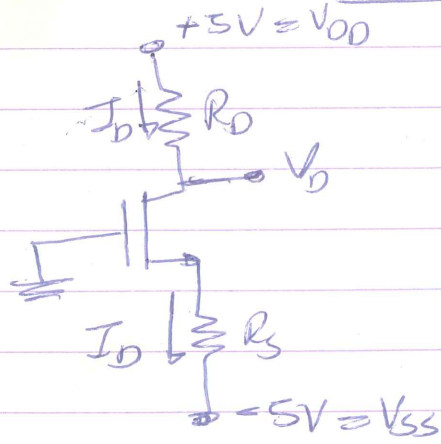 +5V = V_DD
I_D
R_D
V_D
I_D
R_S
-5V = V_SS